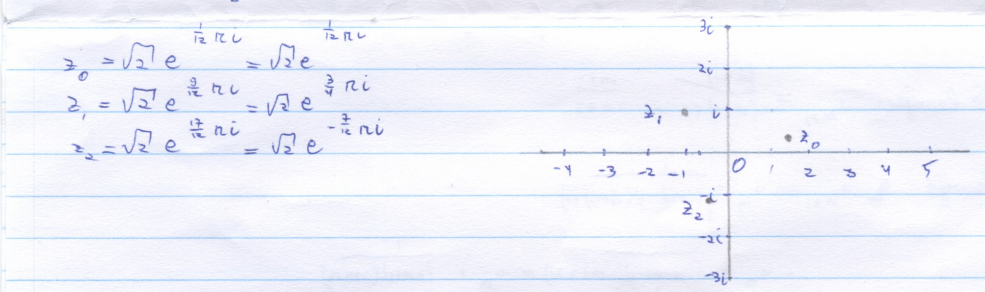 z₀ = √2 e^(1/12 πi) = √2 e^(1/12 πi)
z₁ = √2 e^(9/12 πi) = √2 e^(3/4 πi)
z₂ = √2 e^(17/12 πi) = √2 e^(-7/12 πi)
3i
2i
z₁ i
z₀
-4 -3 -2 -1 0 1 2 3 4 5
z₂ -i
-2i
-3i